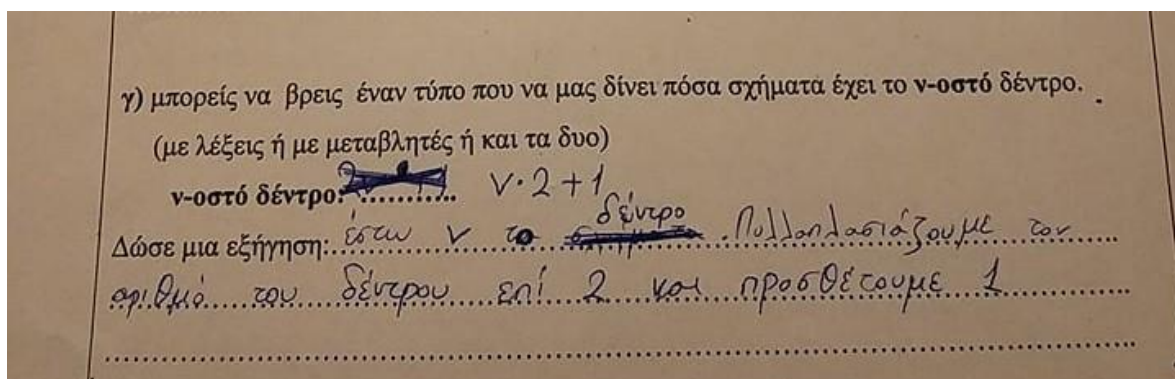 γ) μπορείς να βρεις έναν τύπο που να μας δίνει πόσα σχήματα έχει το ν-οστό δέντρο.
(με λέξεις ή με μεταβλητές ή και τα δυο)
ν-οστό δέντρο:........... ν·2+1
Δώσε μια εξήγηση:.. έστω ν το δέντρο. Πολλαπλασιάζουμε τον
αριθμό του δέντρου επί 2 και προσθέτουμε 1